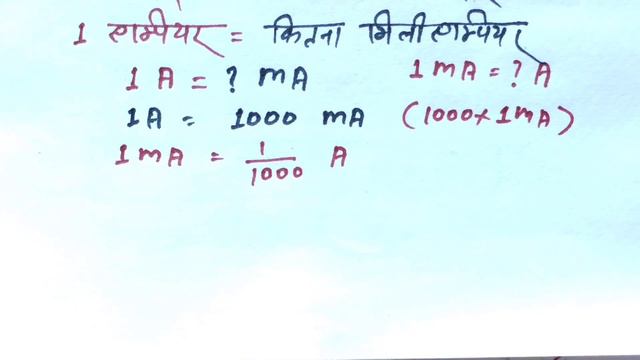 1 एम्पियर = कितना मिली एम्पियर
1 A = ? mA 1 mA = ? A
1A = 1000 mA (1000 × 1mA)
1 mA = 1/1000 A